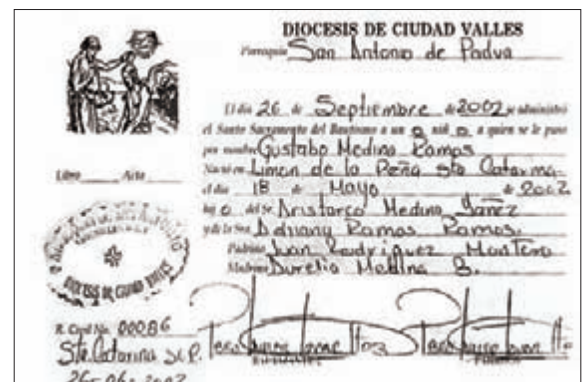 DIOCESIS DE CIUDAD VALLES
Parroquia San Antonio de Padua
El día 26 de Septiembre de 2002 se administró
el Santo Sacramento del Bautismo a un niño a quien se le puso
por nombre Gustabo Medina Ramos
Nació en Limon de la Peña Sta Catarina
el día 18 de Mayo de 2002
hijo del Sr. Aristarco Medina
y de la Sra. Ramos Ramos.
Padrino Juan Rodriguez Montero
Madrina Aurelia Medina
Libro Acta
DIOCESIS DE CIUDAD VALLES
R. Civil No. 00086
Sta. Catarina S.L.P.